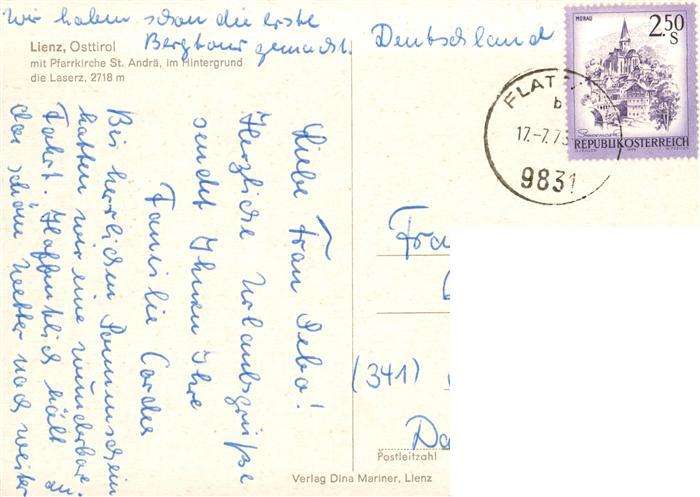 Wir haben schon die erste
Bergtour gemacht.
Lienz, Osttirol
mit Pfarrkirche St. Andrä, im Hintergrund
die Laserz, 2718 m
Liebe Frau
Herzliche Urlaubsgrüße
sendet Ihnen Ihre
Familie Cordes
Bis herrlichen Sonnenschein
hatten wir eine wunderbare
Fahrt. Hoffentlich hält an
das schöne Wetter noch weiter
Deutschland
MURAU
2.50
S
Steiermark
REPUBLIK ÖSTERREICH
FLAT
b
17.-7.73
9831
Fra
(341)
Da
Postleitzahl
Verlag Dina Mariner, Lienz